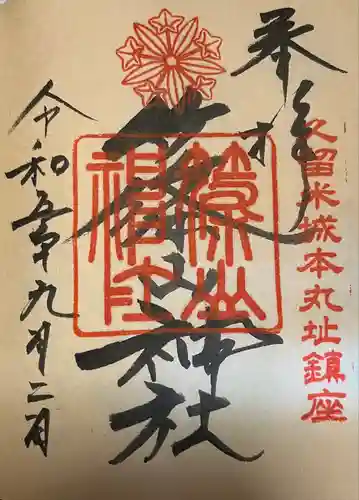 奉拝
久留米城本丸址鎮座
篠山神社
篠山神社
令和五年九月二日